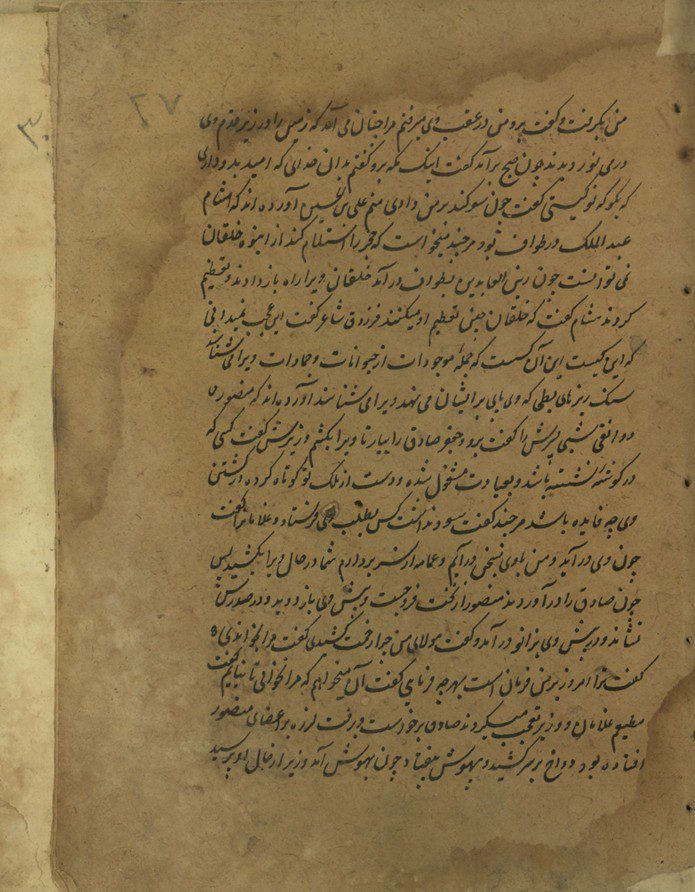 ۲۷
۳۰
من بگرفت و گفت برو من در عقب وی میرفتم مرا چنان می آمد که زمین را در زیر قدم وی
در می نوردیدند چون صبح برآمد گفت اینک مکه برو گفتم بدان خدای که امید بدو داری
که بگو که تو کیستی گفت چون سوکند بر من دادی منم علی بن الحسین آورده اند که هشام
عبد الملک در طواف بود و هر چند میخواست که حجر را استلام کند از انبوه خلقان
نمی توانست چون زین العابدین بطواف درآمد خلقان ویرا راه باز دادند و تعظیم
کردند هشام گفت که خلقان چنین تعظیم او میکنند فرزدق شاعر گفت این عجب نمیدانی
که این کیست این آن کسست که جمله موجودات از حیوانات و جمادات ویرا می شناسد
سنک ریزهای بطحی که وی پای بر ایشان می نهد ویرا می شناسند آورده اند که منصور
دوانقی شبی وزیرش را گفت برو و جعفر صادق را بیار تا ویرا بکشم وزیرش گفت کسی که
در گوشه نشسته باشد و بعبادت مشغول شده و دست از ملک تو کوتاه کرده از کشتن
وی چه فایده باشد هر چند گفت سود نداشت کس بطلب وی فرستاد و غلامانرا گفت
چون وی درآید و من با وی بسخن درآیم و عمامه از سر بردارم شما در حال ویرا بکشید پس
چون صادق را درآوردند منصور از تخت فرو جست و پیش وی باز دوید و در صدرش
نشاند و در پیش وی بزانو درآمد و گفت مولای من چرا زحمت کشیدی گفت مرا خواندی
گفت ترا امروز بر من فرمان است بهر چه فرمایی گفت آن میخواهم که مرا نخوانی تا نیایم گفت
مطیعم غلامان و وزیر تعجب میکردند صادق برخاست و برفت لرزه بر اعضای منصور
افتاده بود دواج بر سر کشید و بیهوش بیفتاد چون بهوش آمد وزیر از حال او پرسید